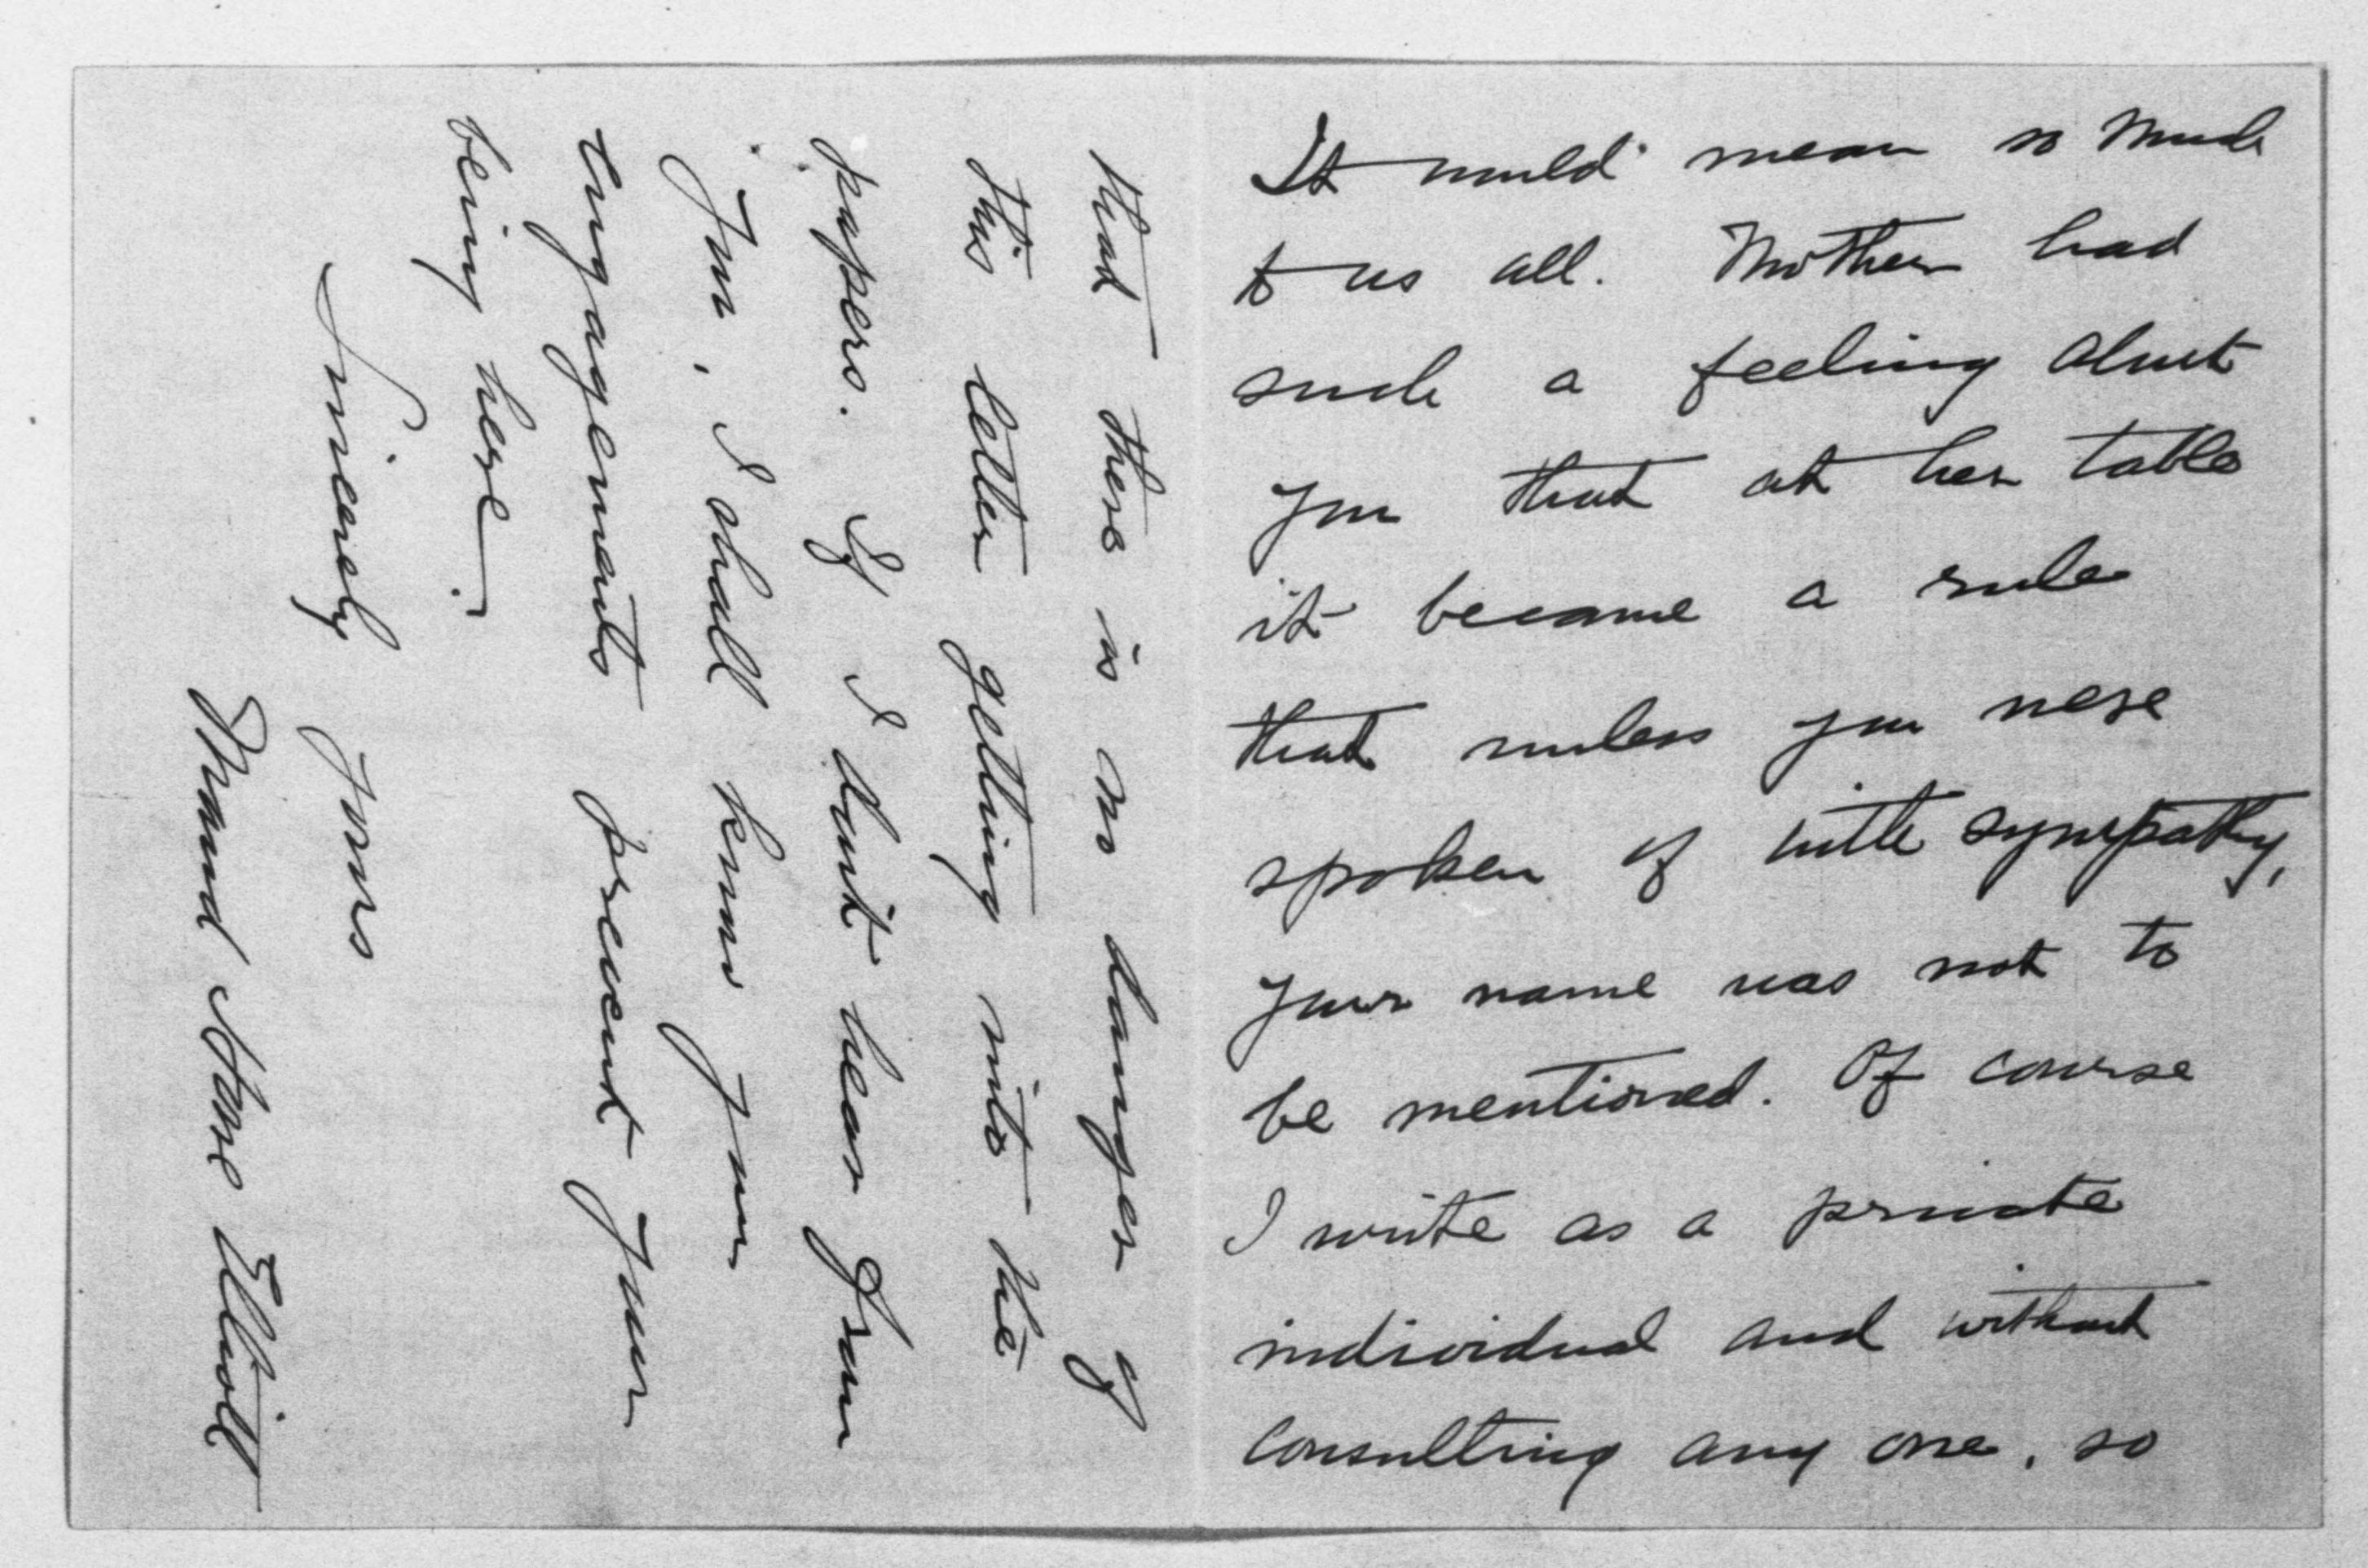 It would mean so much
to us all. Mother had
such a feeling about
you that at her table
it became a rule
that unless you were
spoken of with sympathy,
your name was not to
be mentioned. Of course
I write as a private
individual and without
consulting any one, so
that there is no danger of
this letter getting into the
papers. If I don't hear from
you, I shall know your
engagements prevent your
being here.
Sincerely yours
Maud Howe Elliott